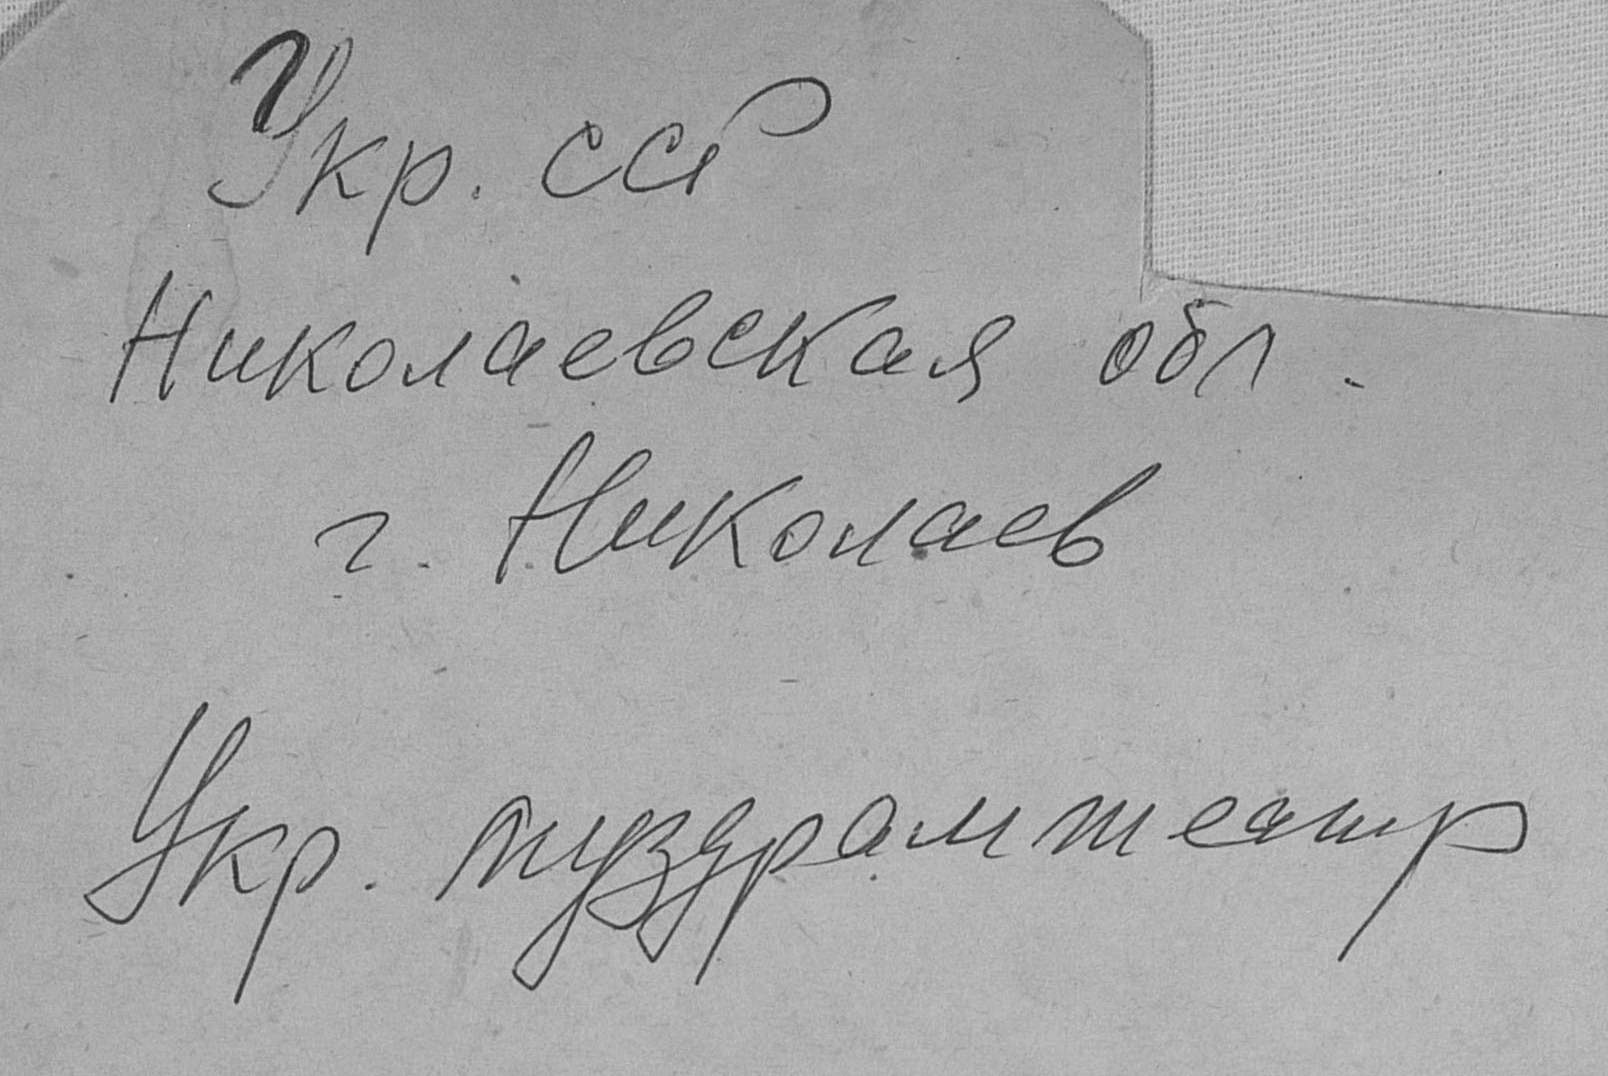 Укр. ССР
Николаевская обл.
г. Николаев
Укр. муздрамтеатр